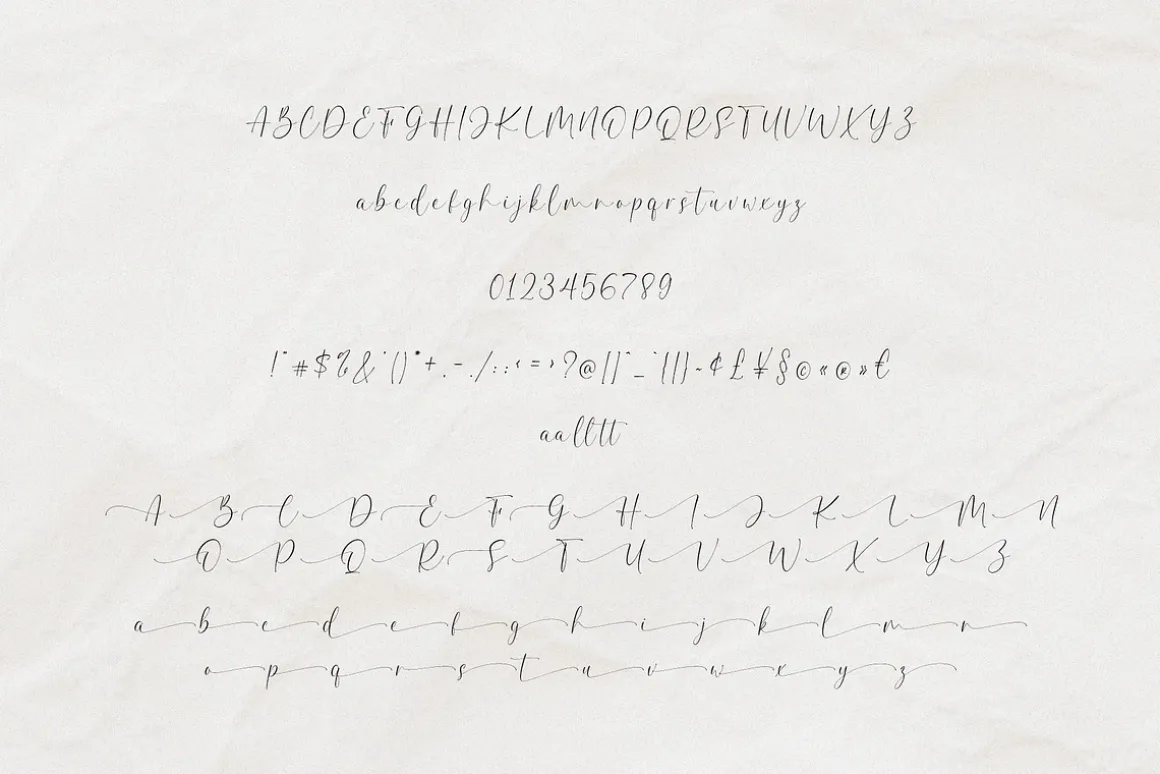 ABCDEFGHIJKLMNOPQRSTUVWXYZ
abcdefghijklmnopqrstuvwxyz
0123456789
!"#$%&'()*+,-./:;‹=›?@[\]^_`{|}~¢£¥§©«®»€
aalltt
A B C D E F G H I J K L M N
O P Q R S T U V W X Y Z
a b c d e f g h i j k l m n
o p q r s t u v w x y z